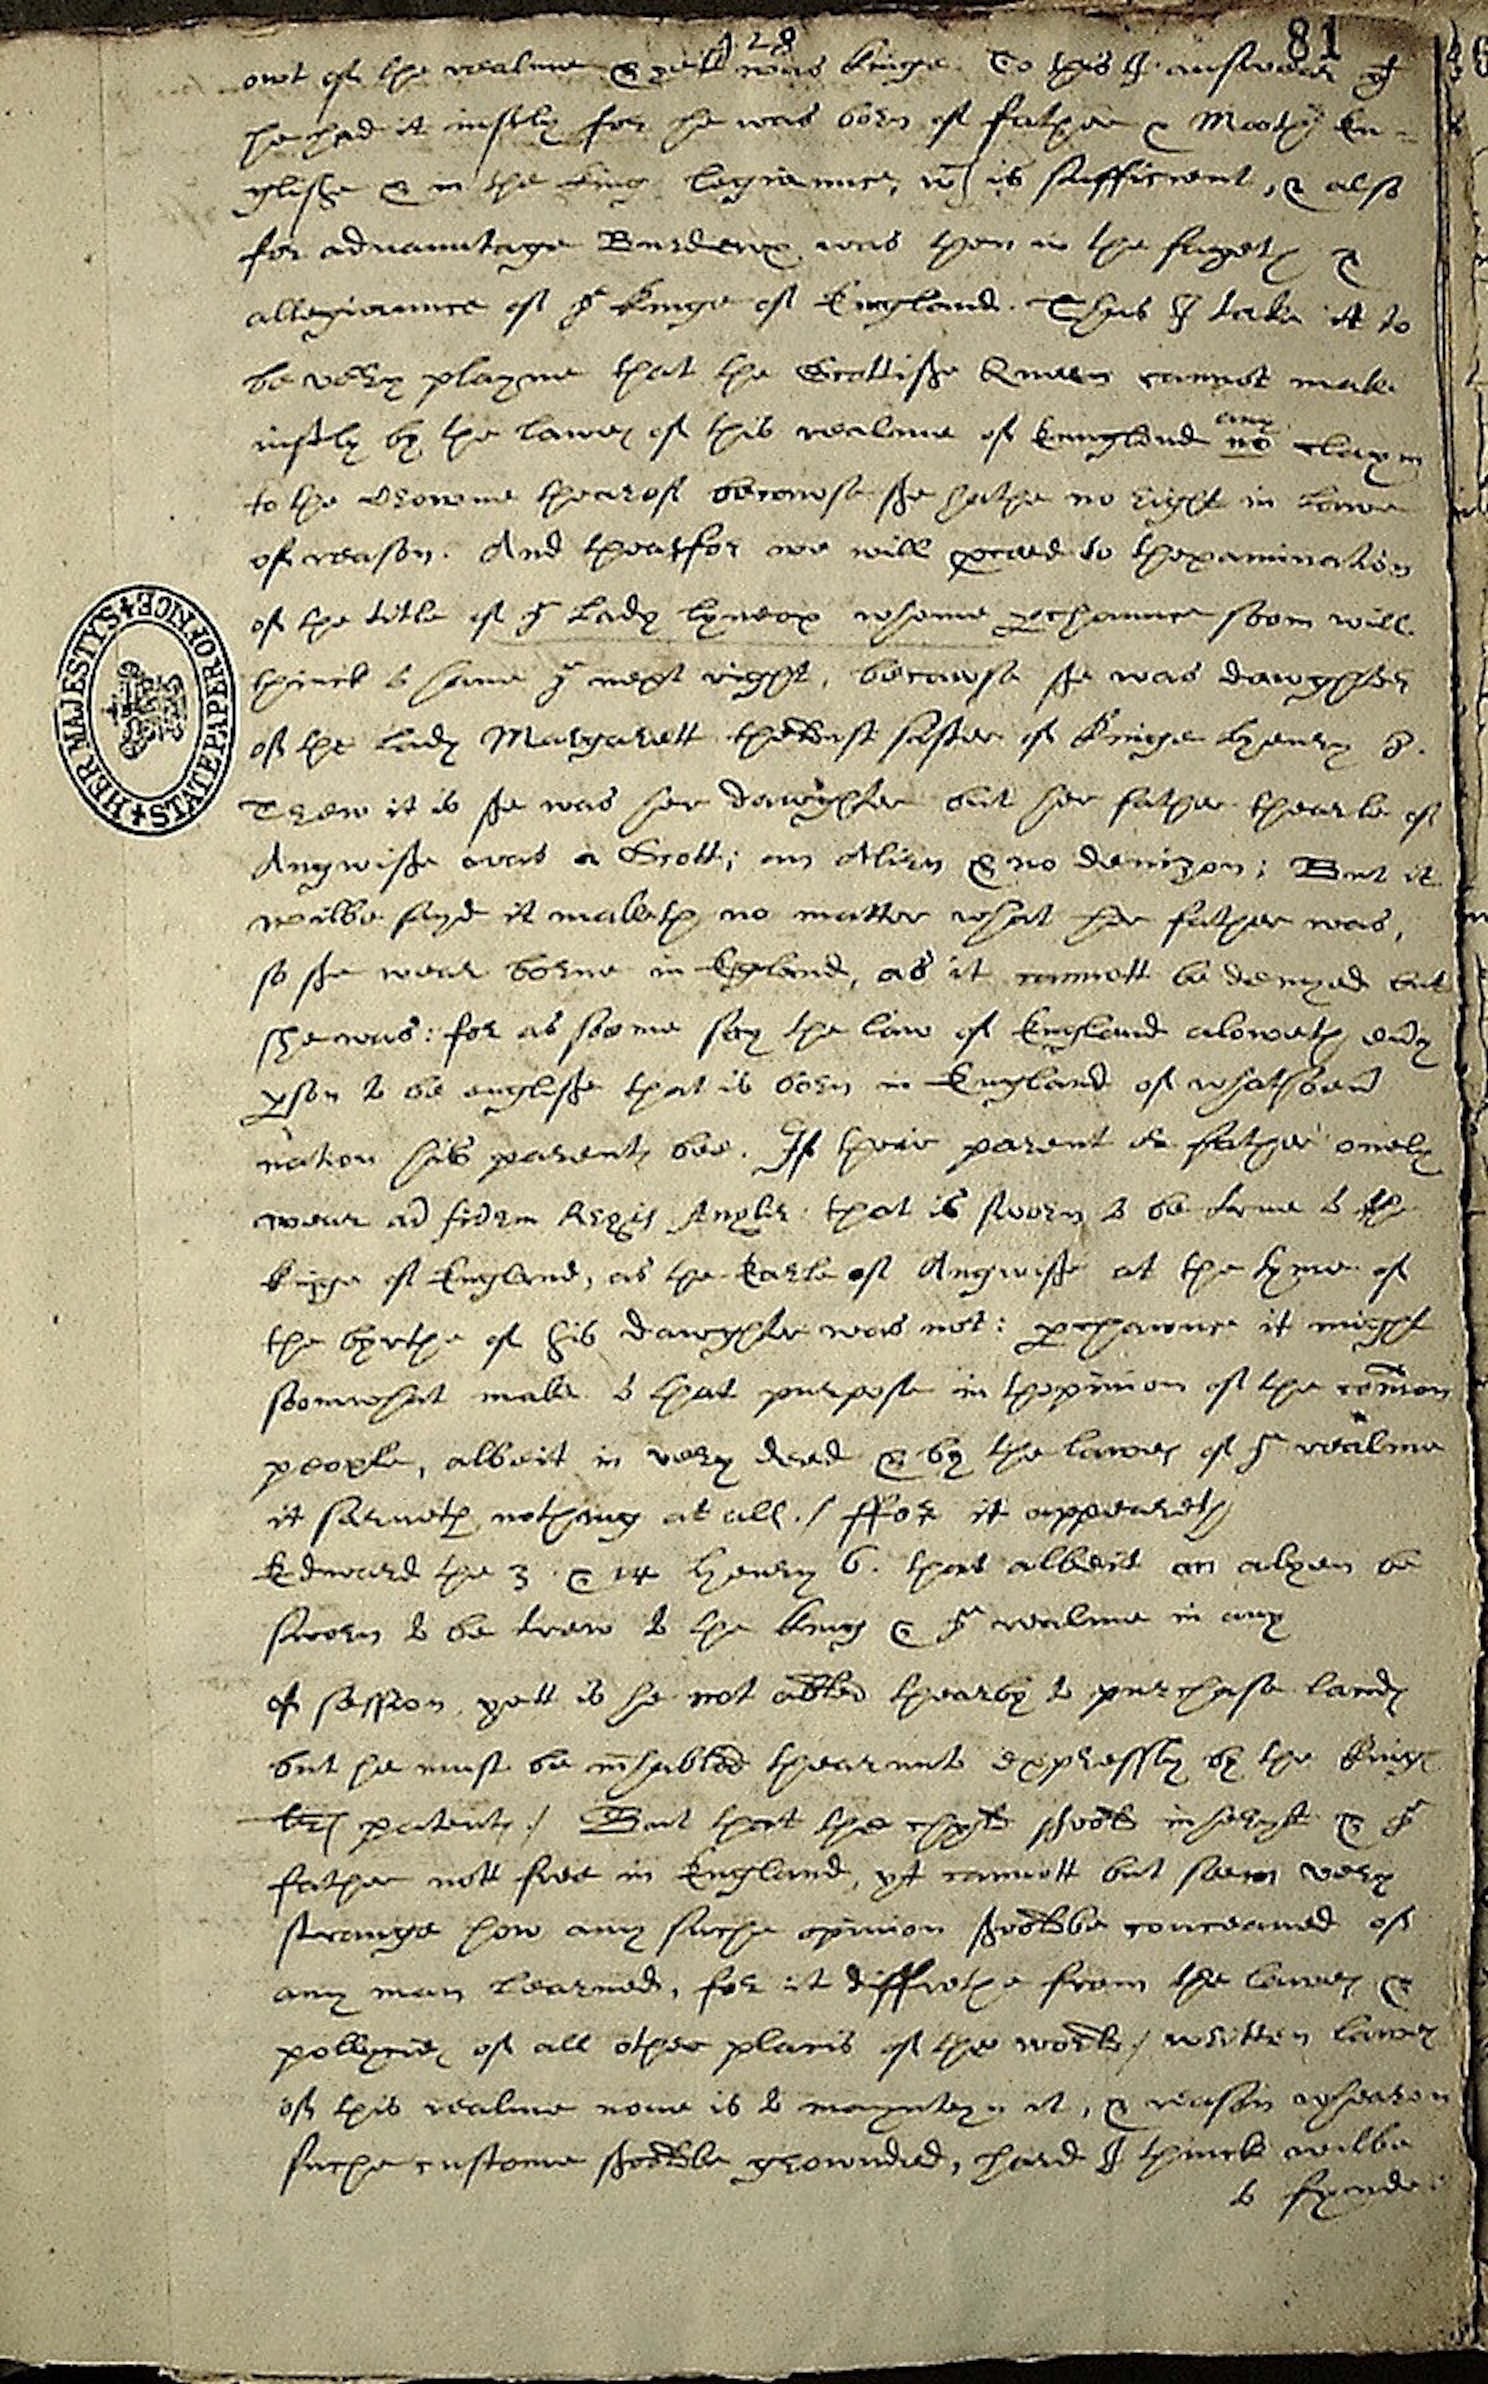 128
81
owt of the realme & yett was kinge. To this I answear yt
he had it iustly for he was born of father & Mother En=
glishe & in the king legiaunce, wch is sufficient, & also
for aduauntage Burdeux was then in the &
allegiaunce of ye kinge of England. Thus I take it to
be very playne that the Scottishe Queen cannot make
iustly by the lawes of this realme of Enngland any no claym
to the Crowne thearof becawse she hathe no right in lawe
of reason. And thearfor we will proceed to thexamination
of the title of ye Lady Lyneox whome perchaunce soom will
thinck to haue ye next right, becawse she was dawghter
of the Lady Margarett theldest sister of Kinge Henry 8.
Trew it is she was her dawghter but her father thearle of
Angwishe was a Scott; an Alien & no denizon; But it
wilbe sayd it maketh no matter what her father was,
so she wear borne in England, as it cannott be denyed but
she was: for as soome say the law of England aloweth euery
person to be englishe that is born in England of whatsoeuer
nation his parentes bee. If their parent or father onely
wear ad fidem Regis Anglie that is sworn to be trwe to the
kinge of England, as the Earle of Angwishe at the tyme of
the byrthe of his dawghter was not: perchaunce it might
soomwhat make to that purpose in thopinion of the common
people, albeit in very deed & by the lawes of ye realme
it serueth nothing at all./ ffor it appeareth
Edward the 3 & 14 Henry 6. that albeit an alyen be
sworn to be trew to the king & ye realme in any
of session, yett is he not abled thearby to purchase landes
but he must be inhabled thearunto expressly by the kinges
lres patentes./ But that the chyld shold inheryt & ye
father nott free in England, yt cannott but seem very
straunge how any suche opinion sholdbe conceaued of
any man learned, for it differethe from the lawes &
pollycies of all other placis of the world/ written lawes
of this realme none is to maynteyn it, & reason whearon
suche custome sholdbe grownded, hard I thinck wilbe
to fynde
HER MAJESTYS STATE PAPER OFFICE